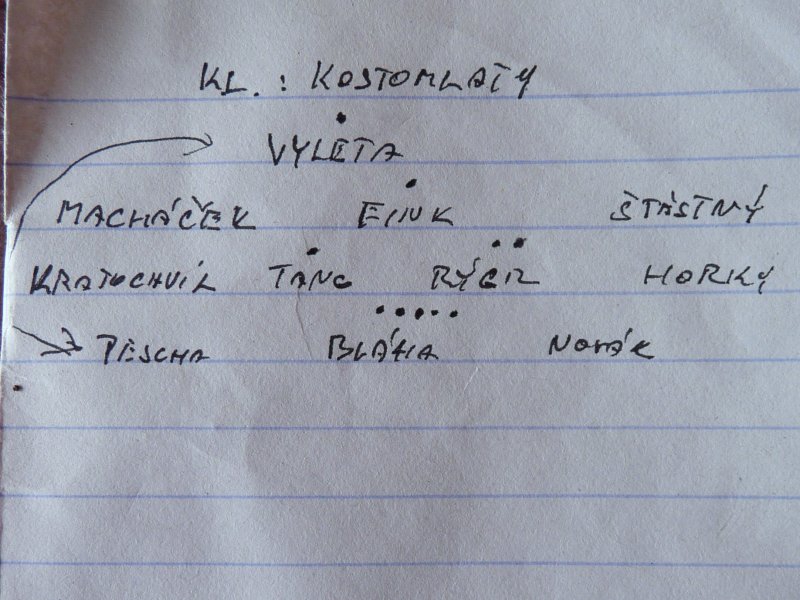 KL. : KOSTOMLATY
VYLETA
MACHÁČEK FINK ŠŤÁSTNÝ
KRATOCHVÍL TANC RÝGR HORKÝ
PESCHA BLÁHA NOVÁK